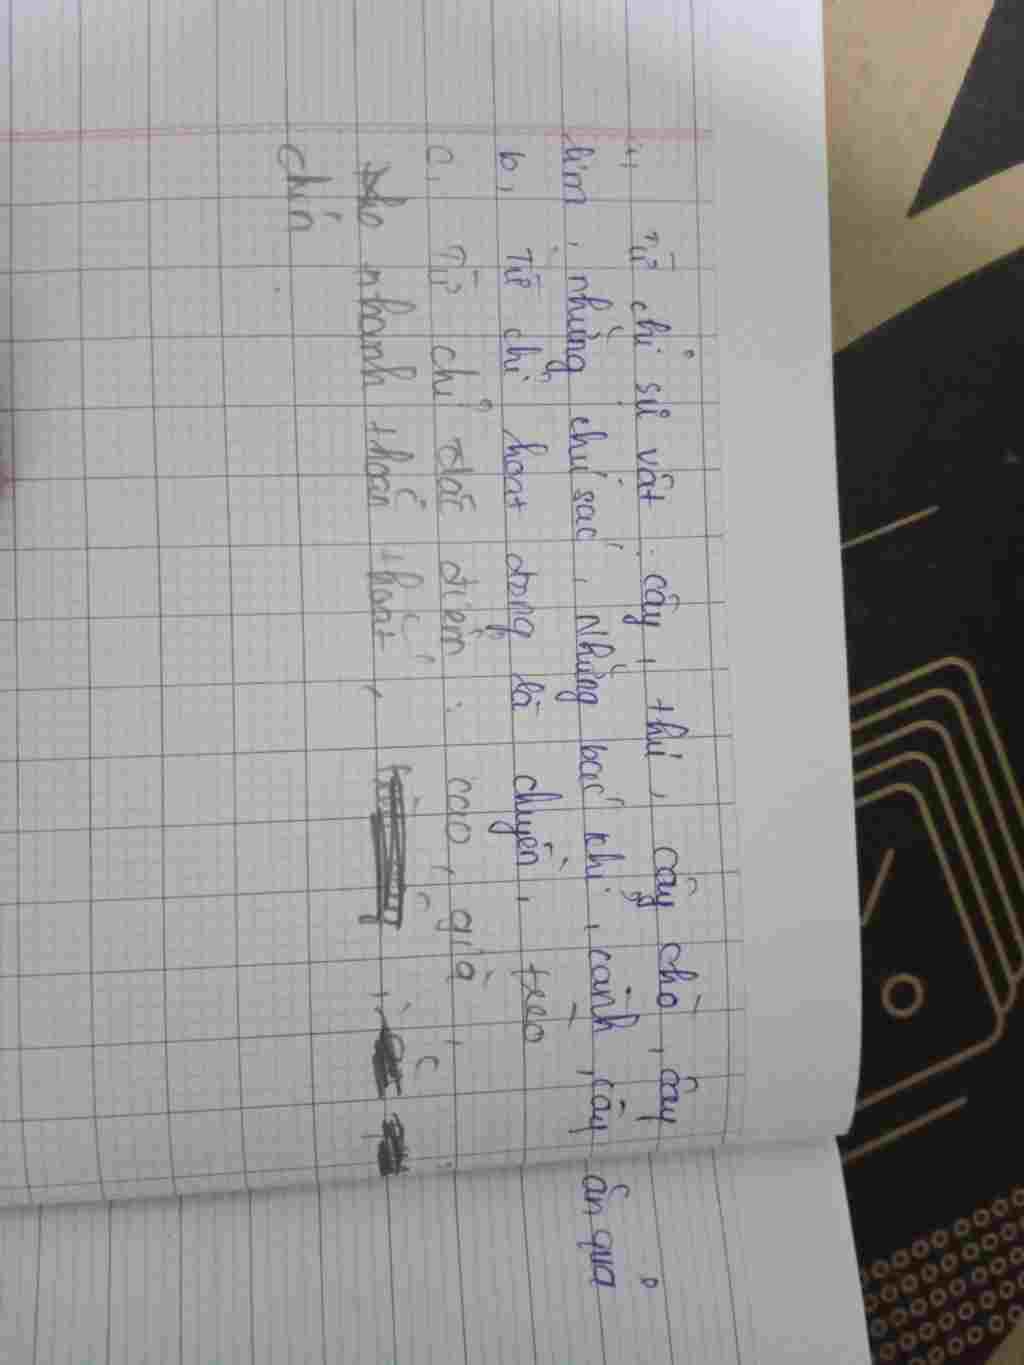 a, Từ chỉ sự vật: cây, thú, cây chò, cây
lim, những chú sóc, những bác khỉ, cành, cây ăn quả
b, Từ chỉ hoạt động là chuyền, treo
c, Từ chỉ đặc điểm: cao, già,
nhanh thoăn thoắt,
chín